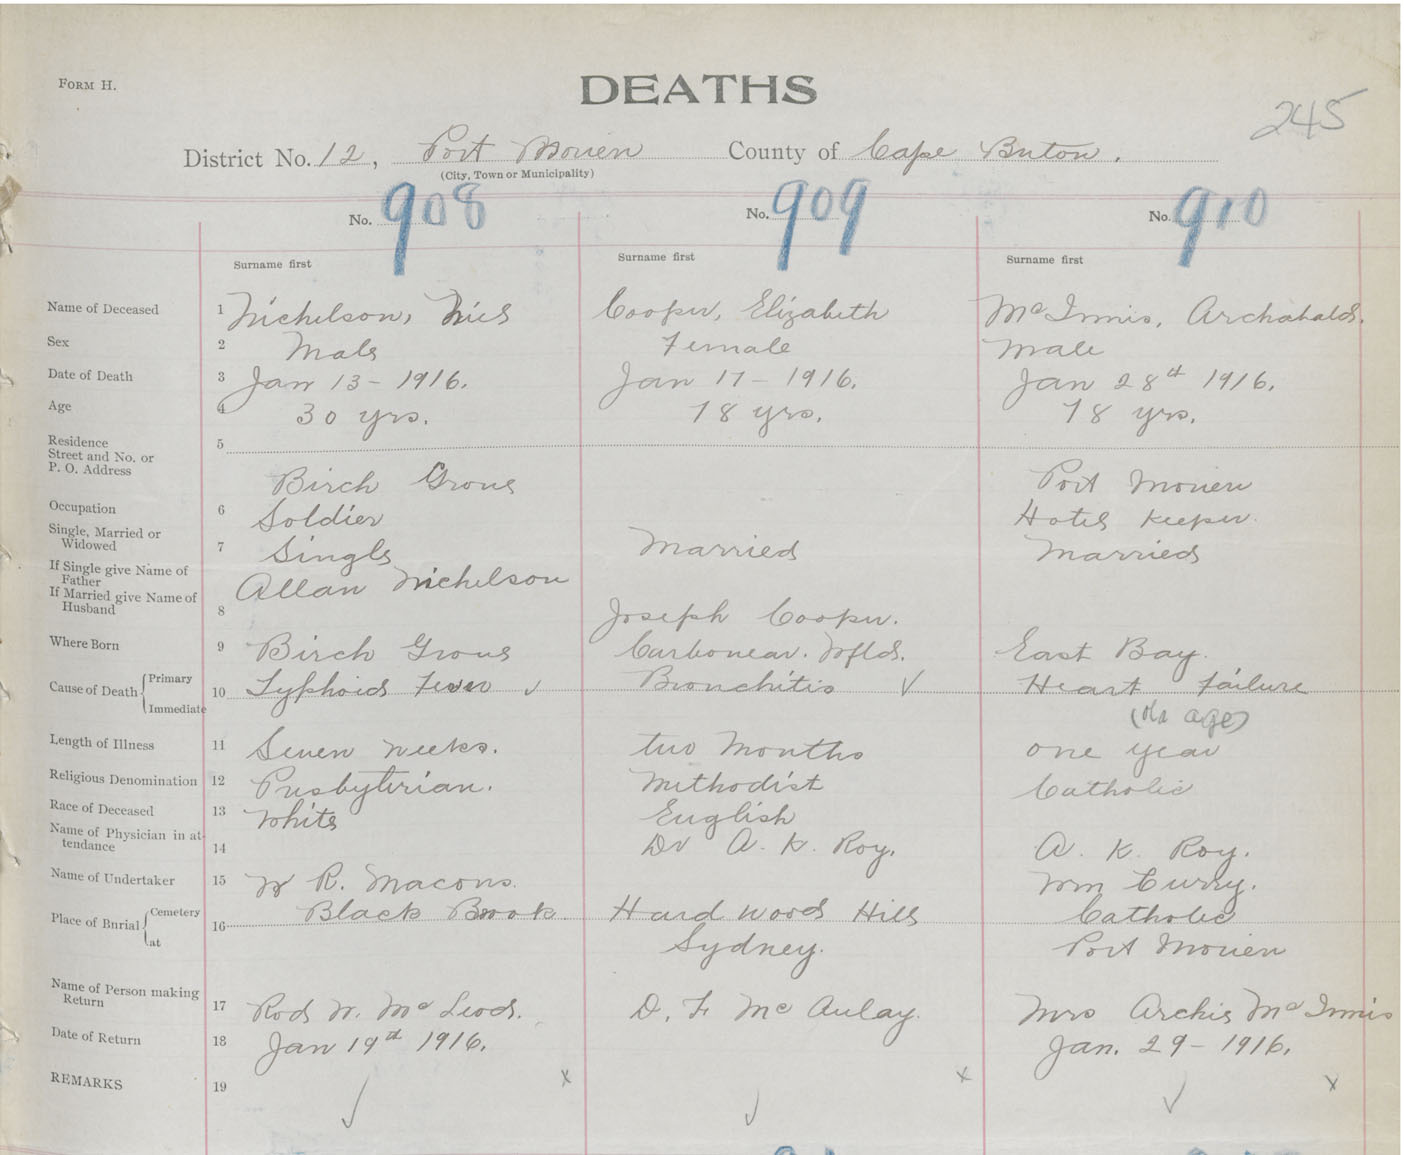 FORM H.
DEATHS
245
District No. 12, Port Morien County of Cape Breton.
(City, Town or Municipality)
No. 908 No. 909 No. 910
Surname first Surname first Surname first
Name of Deceased 1 Nichelson, Cooper, Elizabeth McInnis, Archabald.
Sex 2 Male Female male
Date of Death 3 Jan 13 - 1916. Jan 17 - 1916. Jan 28th 1916.
Age 4 30 yrs. 78 yrs. 78 yrs.
Residence
Street and No. or 5
P. O. Address Birch Grove Port Morien
Occupation 6 Soldier Hotel Keeper.
Single, Married or
Widowed 7 Single Married Married
If Single give Name of
Father Allan Nichelson
If Married give Name of
Husband 8 Joseph Cooper.
Where Born 9 Birch Grove Carbonear. Nfld. East Bay.
Cause of Death Primary 10 Typhoid Fever ✓ Bronchitis ✓ Heart failure
Immediate (old age)
Length of Illness 11 Seven weeks. two Months one year
Religious Denomination 12 Presbyterian. Methodist Catholic
Race of Deceased 13 White English
Name of Physician in at-
tendance 14 Dr A. K. Roy. A. K. Roy.
Name of Undertaker 15 W R. Macons. Wm Curry.
Place of Burial Cemetery 16 Black Brook. Hard wood Hill Catholic
at Sydney. Port Morien
Name of Person making
Return 17 Rod W. McLeod. D. F. McAulay. Mrs Archie McInnis
Date of Return 18 Jan 19th 1916. Jan. 29 - 1916.
REMARKS 19 x x x
✓ ✓ ✓